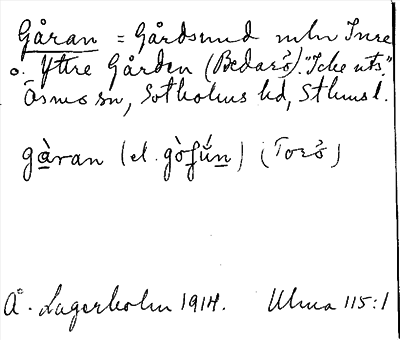 Gåran = Gårdsund mln Inre
o. Yttre Gården (Bedarö). "Icke uts."
Ösmo sn, Sotholms hd, Sthms l.
gàran (el. gò̀fún) (Torö)
Å. Lagerholm 1914. Ulma 115:1